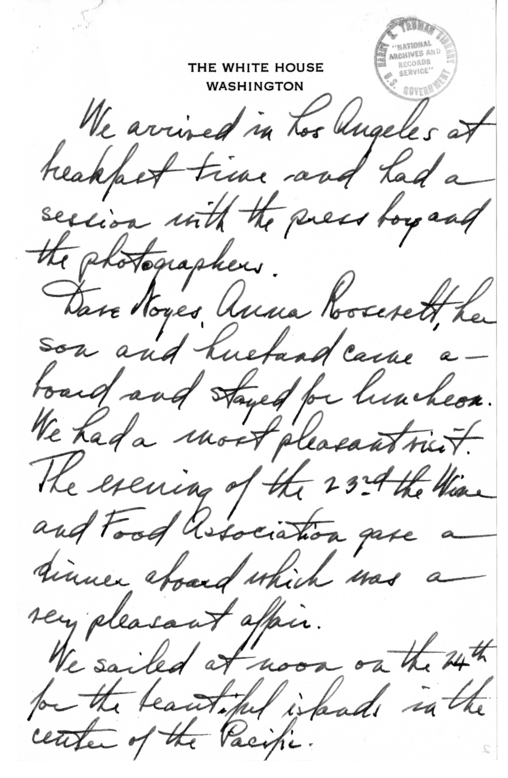 HARRY S. TRUMAN LIBRARY
"NATIONAL
ARCHIVES AND
RECORDS
SERVICE"
U.S. GOVERNMENT
THE WHITE HOUSE
WASHINGTON
We arrived in Los Angeles at
breakfast time and had a
session with the press boy and
the photographers.
Dave Noyes, Anna Roosevelt, her
son and husband came a-
board and stayed for luncheon.
We had a most pleasant visit.
The evening of the 23rd the Wine
and Food Association gave a
dinner aboard which was a
very pleasant affair.
We sailed at noon on the 24th
for the beautiful islands in the
center of the Pacific.